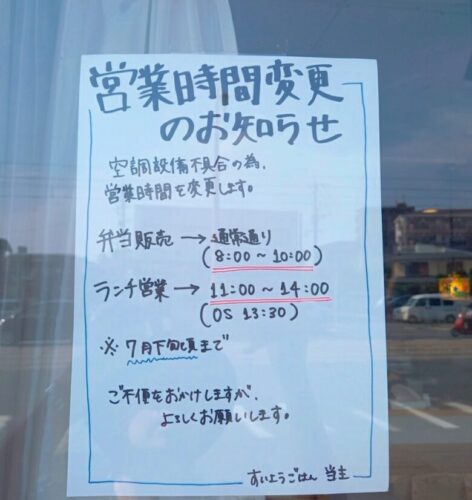 営業時間変更
のお知らせ
空調設備不具合の為、
営業時間を変更します。
弁当販売 → 通常通り
(8:00 ~ 10:00)
ランチ営業 → 11:00 ~ 14:00
(OS 13:30)
※ 7月下旬頃まで
ご不便をおかけしますが、
よろしくお願いします。
すいようごはん 当主